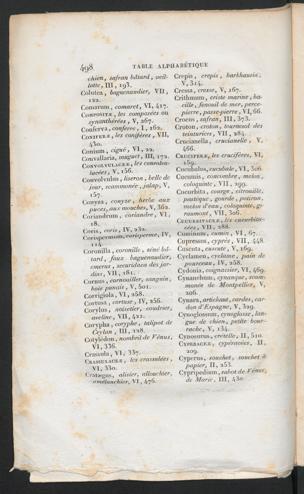 498 TABLE ALPHABÉTIQUE
chien, safran bâtard, veil-
lotte, III, 193.
Colutea, baguenaudier, VII,
122.
Comarum, comaret, VI, 417.
COMPOSITÆ, les composées ou
synanthérées, V, 267.
Conferva, conferve, I, 162.
CONIFERÆ, les conifères, VII,
430.
Conium, ciguë, VI, 22.
Convallaria, muguet, III, 172.
CONVOLVULACEÆ, les convolvu-
lacées, V, 156.
Convolvulus, liseron, belle de
jour, V,
157.
Conyza, conyze, herbe aux
puces, aux mouches, V, 362.
Coriandrum, coriandre, VI,
18.
Coris, coris, IV, 232.
Corispermum, corisperme, IV,
114.
Coronilla, coronille, séné bâ-
tard, faux baguenaudier,
emerus, securidaca des jar-
dins, VII, 181.
Cornus, cornouiller, sanguin,
bois punais, V, 501.
Corrigiola, VI, 258.
Cortusa, cortuse, IV, 256.
Corylus, noisetier, coudrier,
aveline, VII, 422.
Corypha, coryphe, talipot de
Ceylan, III, 128.
Cotyledon, nombril de Vénus,
VI, 336.
Crassula, VI, 337.
CRASSULACEÆ, les crassulées,
VI, 330.
Cratægus, alisier, allouchier,
amelanchier, VI, 476.
Crepis, crepis, barkhausia,
V, 314.
Cressa, cresse, V, 167.
Crithmum, criste marine, ba-
cille, fenouil de mer, perce-
pierre, passe-pierre, VI, 66.
Crocus, safran, III, 373.
Croton, croton, tournesol des
teinturiers, VII, 284.
Crucianella, crucianelle, V,
466.
CRUCIFERÆ, les crucifères, VI,
159.
Cucubalus, cucubale, VI, 306.
Cucumis, concombre, melon,
coloquinte, VII, 299.
Cucurbita, courge, citrouille,
pastèque, gourde, potiron,
melon d'eau, gi-
raumont, VII, 306.
CUCURBITACEÆ, les cucurbita-
cées, VII, 288.
Cuminum, cumin, VI, 67.
Cupressus, cyprès, VII, 448.
Cuscuta, cuscute, V, 169.
Cyclamen, cyclame, pain de
pourceau, IV, 258.
Cydonia, cognassier, VI, 469.
Cynanchum, cynanque, scam-
monée de Montpellier, V,
206.
Cynara, artichaut, cardes, car-
don d'Espagne, V, 329.
Cynoglossum, cynoglosse, lan-
gue de chien, petite bour-
rache, V, 134.
Cynosurus, crételle, II, 510.
CYPERACEÆ, cypéracées, II,
209.
Cyperus, souchet, souchet à
papier, II, 253.
Cypripedium, sabot de Vénus,
de Marie, III, 430.